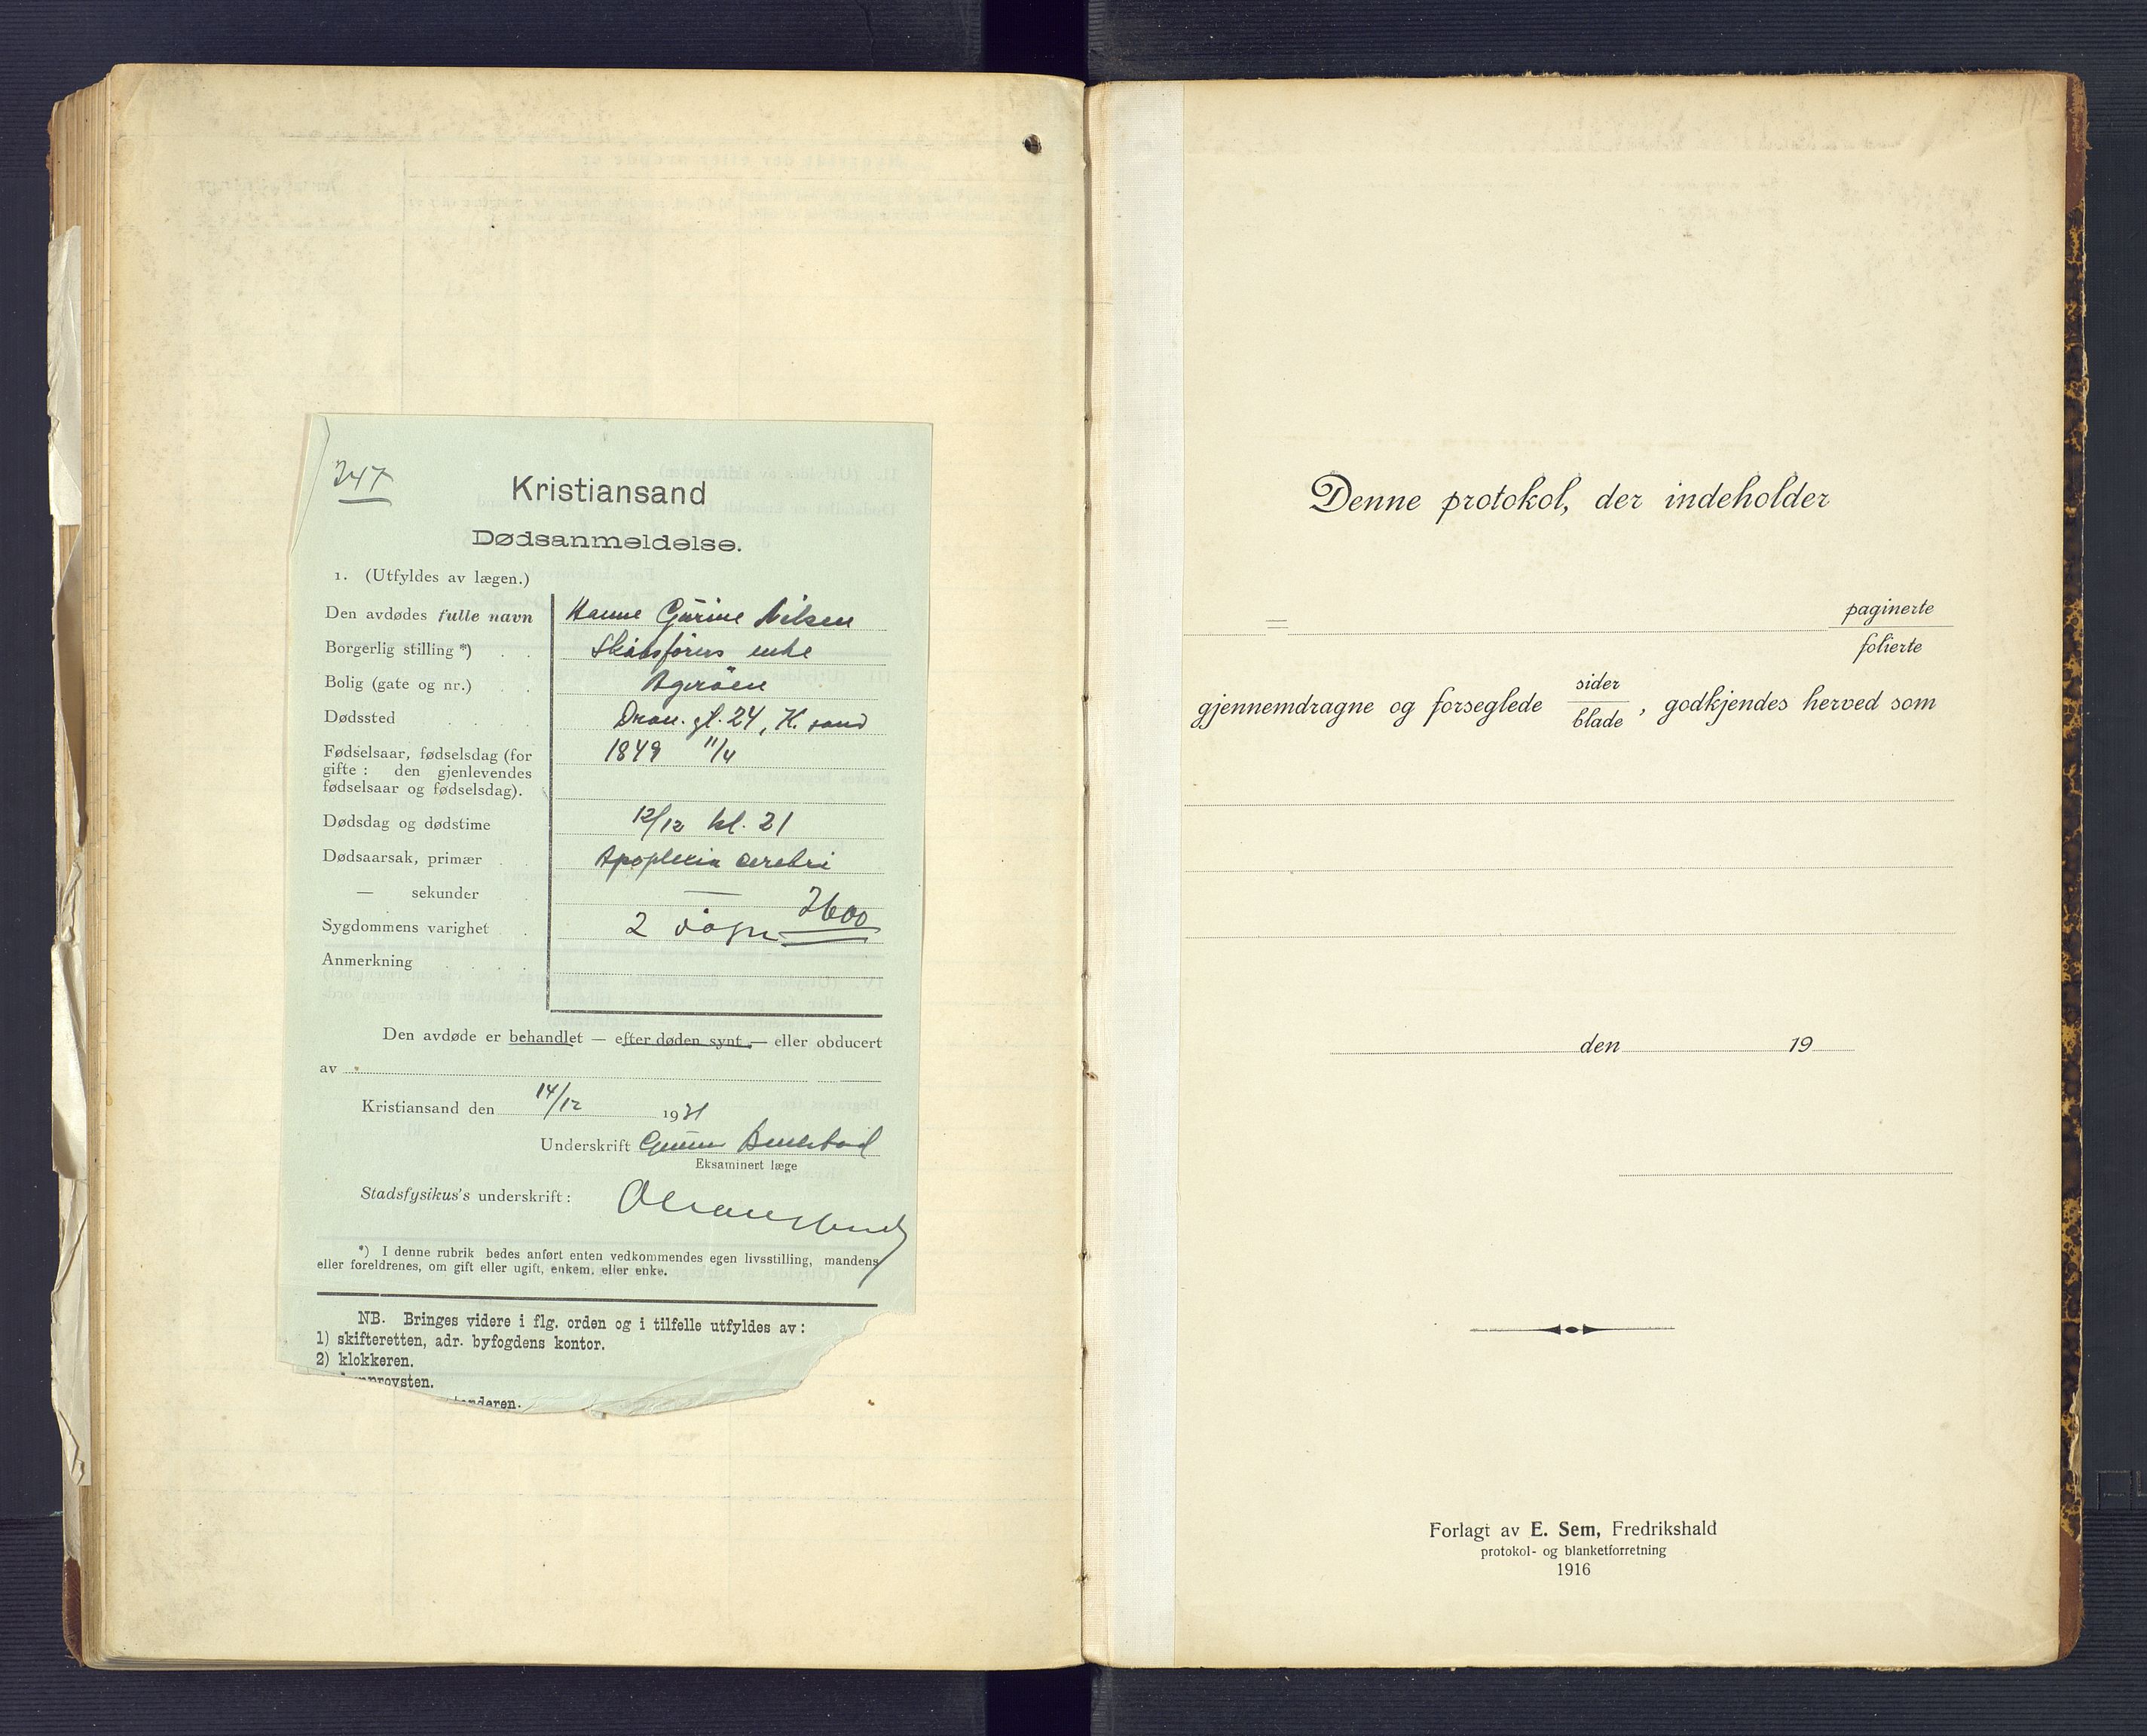 347
Kristiansand
Dødsanmeldelse.
1. (Utfyldes av lægen.)
Den avdødes fulle navn Hanne Gurine Nilsen
Borgerlig stilling *) . . Skibsførers enke
Bolig (gate og nr.) . . Agerøen
Dødssted . . . Dron. gt. 24, K.sand
Fødselsaar, fødselsdag (for 1849 11/4
gifte: den gjenlevendes
fødselsaar og fødselsdag).
Dødsdag og dødstime 12/12 kl. 21
Dødsaarsak, primær . . Apoplexia cerebri
— sekunder . —
2600
Sygdommens varighet . . 2 døgn
Anmerkning . . . .
Den avdøde er behandlet — efter døden synt — eller obducert
av
Kristiansand den 14/12 1931
Underskrift Gunnar
Eksaminert læge
Stadsfysikus's underskrift:
*) I denne rubrik bedes anført enten vedkommendes egen livsstilling, mandens
eller foreldrenes, om gift eller ugift, enkem. eller enke.
NB. Bringes videre i flg. orden og i tilfelle utfyldes av:
1) skifteretten, adr. byfogdens kontor.
2) klokkeren.
provsten.
deren.
Denne protokol, der indeholder
= paginerte
folierte
gjennemdragne og forseglede sider
blade , godkjendes herved som
den 19
Forlagt av E. Sem, Fredrikshald
protokol- og blanketforretning
1916